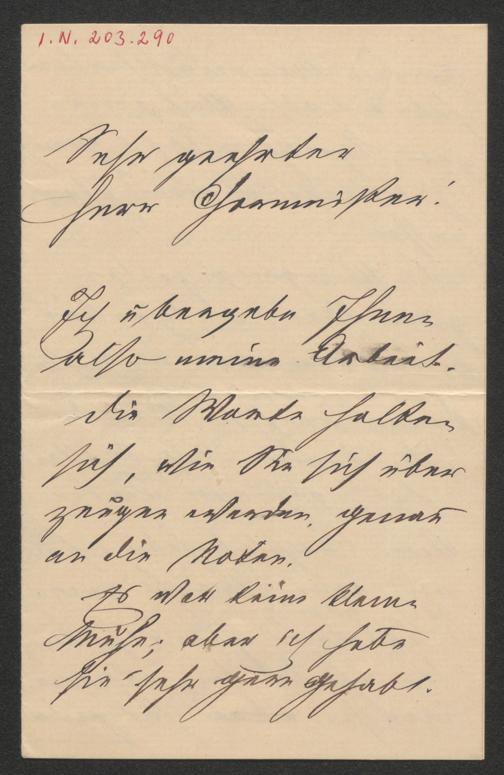 I.N. 203.290
Sehr geehrter
Herr Chormeister!
Ich übergebe Ihnen
also meine Arbeit.
Die Worte halten
sich, wie Sie sich über
zeugen werden, genau
an die Noten.
Es war keine kleine
Mühe; aber ich habe
sie sehr gern gehabt.